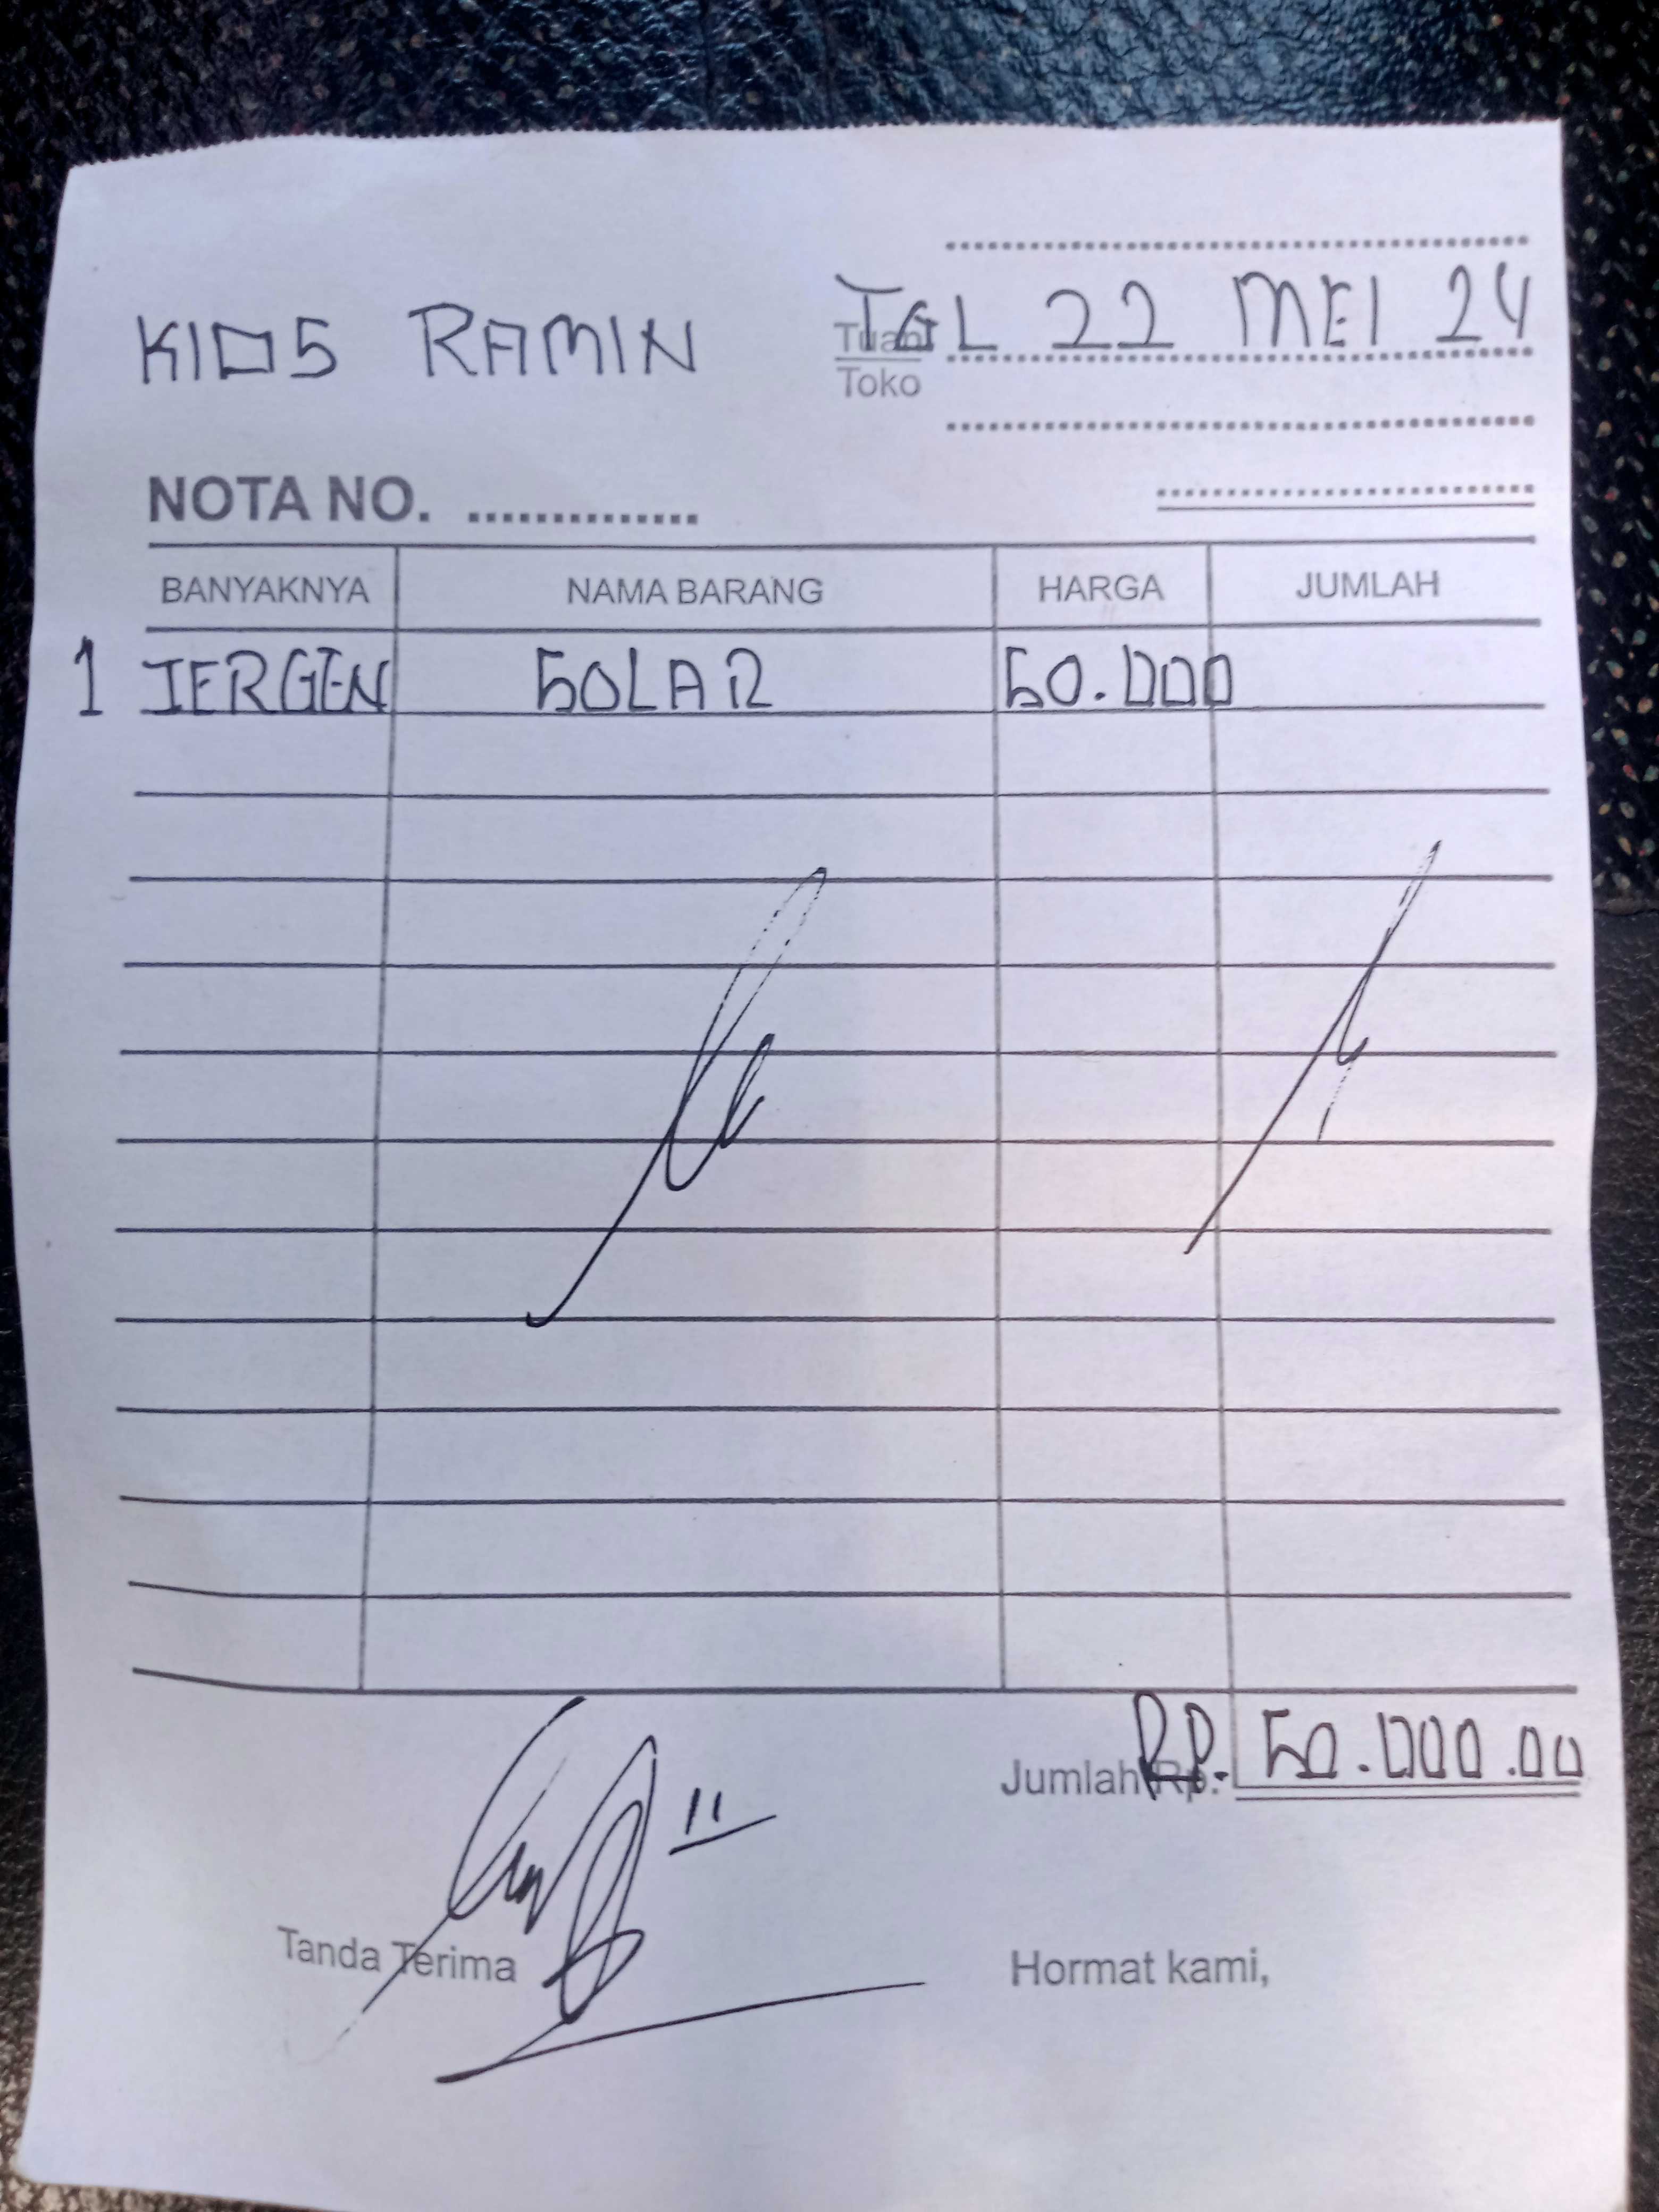 KIOS RAMIN
TGL 22 MEI 24
Tuan
Toko
NOTA NO. ..............
BANYAKNYA NAMA BARANG HARGA JUMLAH
1 JERGEN SOLAR 50.000
Jumlah Rp. RP. 50.000.00
Tanda Terima Hormat kami,